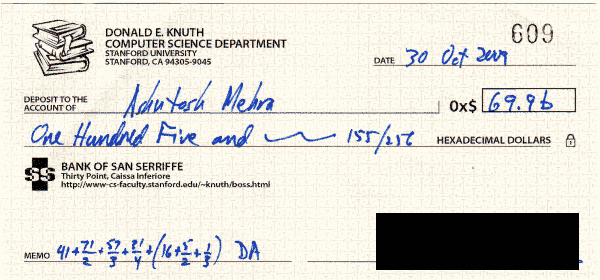 609
DONALD E. KNUTH
COMPUTER SCIENCE DEPARTMENT
STANFORD UNIVERSITY
STANFORD, CA 94305-9045
DATE 30 Oct 2009
DEPOSIT TO THE
ACCOUNT OF Ashutosh Mehra 0x$ 69.9b
One Hundred Five and 155/256 HEXADECIMAL DOLLARS
SS BANK OF SAN SERRIFFE
Thirty Point, Caissa Inferiore
http://www-cs-faculty.stanford.edu/~knuth/boss.html
MEMO 41+71/2+57/3+81/4+(16+5/2+1/3) DA